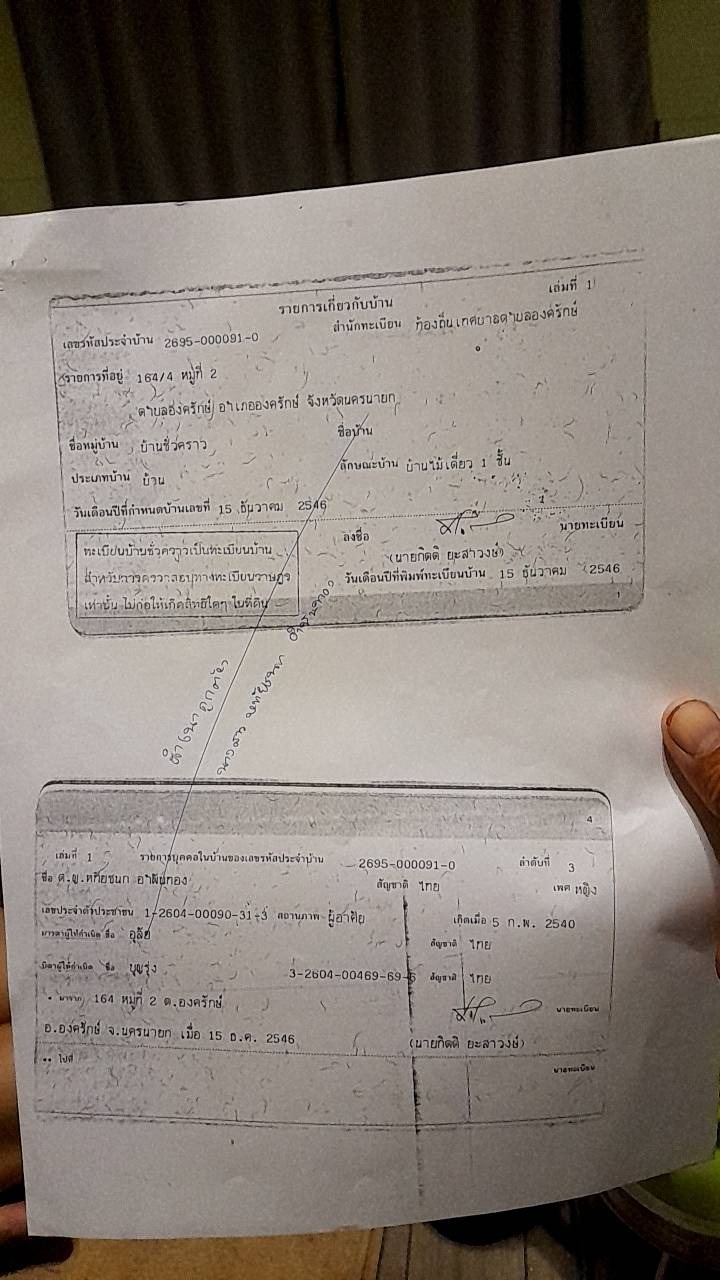 รายการเกี่ยวกับบ้าน เล่มที่ 1
เลขรหัสประจำบ้าน 2695-000091-0 สำนักทะเบียน ท้องถิ่นเทศบาลตำบลองครักษ์
รายการที่อยู่ 164/4 หมู่ที่ 2
ตำบลองครักษ์ อำเภอองครักษ์ จังหวัดนครนายก
ชื่อหมู่บ้าน บ้านชั่วคราว ชื่อบ้าน
ประเภทบ้าน บ้าน ลักษณะบ้าน บ้านไม้เดี่ยว 1 ชั้น
วันเดือนปีที่กำหนดบ้านเลขที่ 15 ธันวาคม 2546
ลงชื่อ นายทะเบียน
(นายกิตติ ยะสาวงษ์)
วันเดือนปีที่พิมพ์ทะเบียนบ้าน 15 ธันวาคม 2546
ทะเบียนบ้านชั่วคราวเป็นทะเบียนบ้าน
สำหรับการตรวจสอบทางทะเบียนราษฎร
เท่านั้น ไม่ก่อให้เกิดสิทธิใดๆ ในที่ดิน
1
สำเนาถูกต้อง
นางสาว หทัยชนก
4
เล่มที่ 1 รายการบุคคลในบ้านของเลขรหัสประจำบ้าน 2695-000091-0 ลำดับที่ 3
ชื่อ ด.ญ.หทัยชนก สัญชาติ ไทย เพศ หญิง
เลขประจำตัวประชาชน 1-2604-00090-31-3 สถานภาพ ผู้อาศัย เกิดเมื่อ 5 ก.พ. 2540
มารดาผู้ให้กำเนิด ชื่อ อุลัย สัญชาติ ไทย
บิดาผู้ให้กำเนิด ชื่อ บุญรุ่ง 3-2604-00469-69-6 สัญชาติ ไทย
* มาจาก 164 หมู่ที่ 2 ต.องครักษ์
นายทะเบียน
อ.องครักษ์ จ.นครนายก เมื่อ 15 ธ.ค. 2546 (นายกิตติ ยะสาวงษ์)
** ไปที่
นายทะเบียน